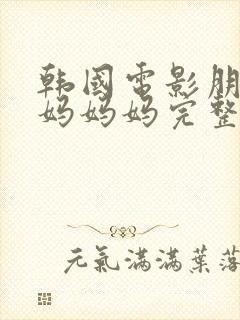 韩國電影朋
妈妈妈完整
元氣滿滿葉落